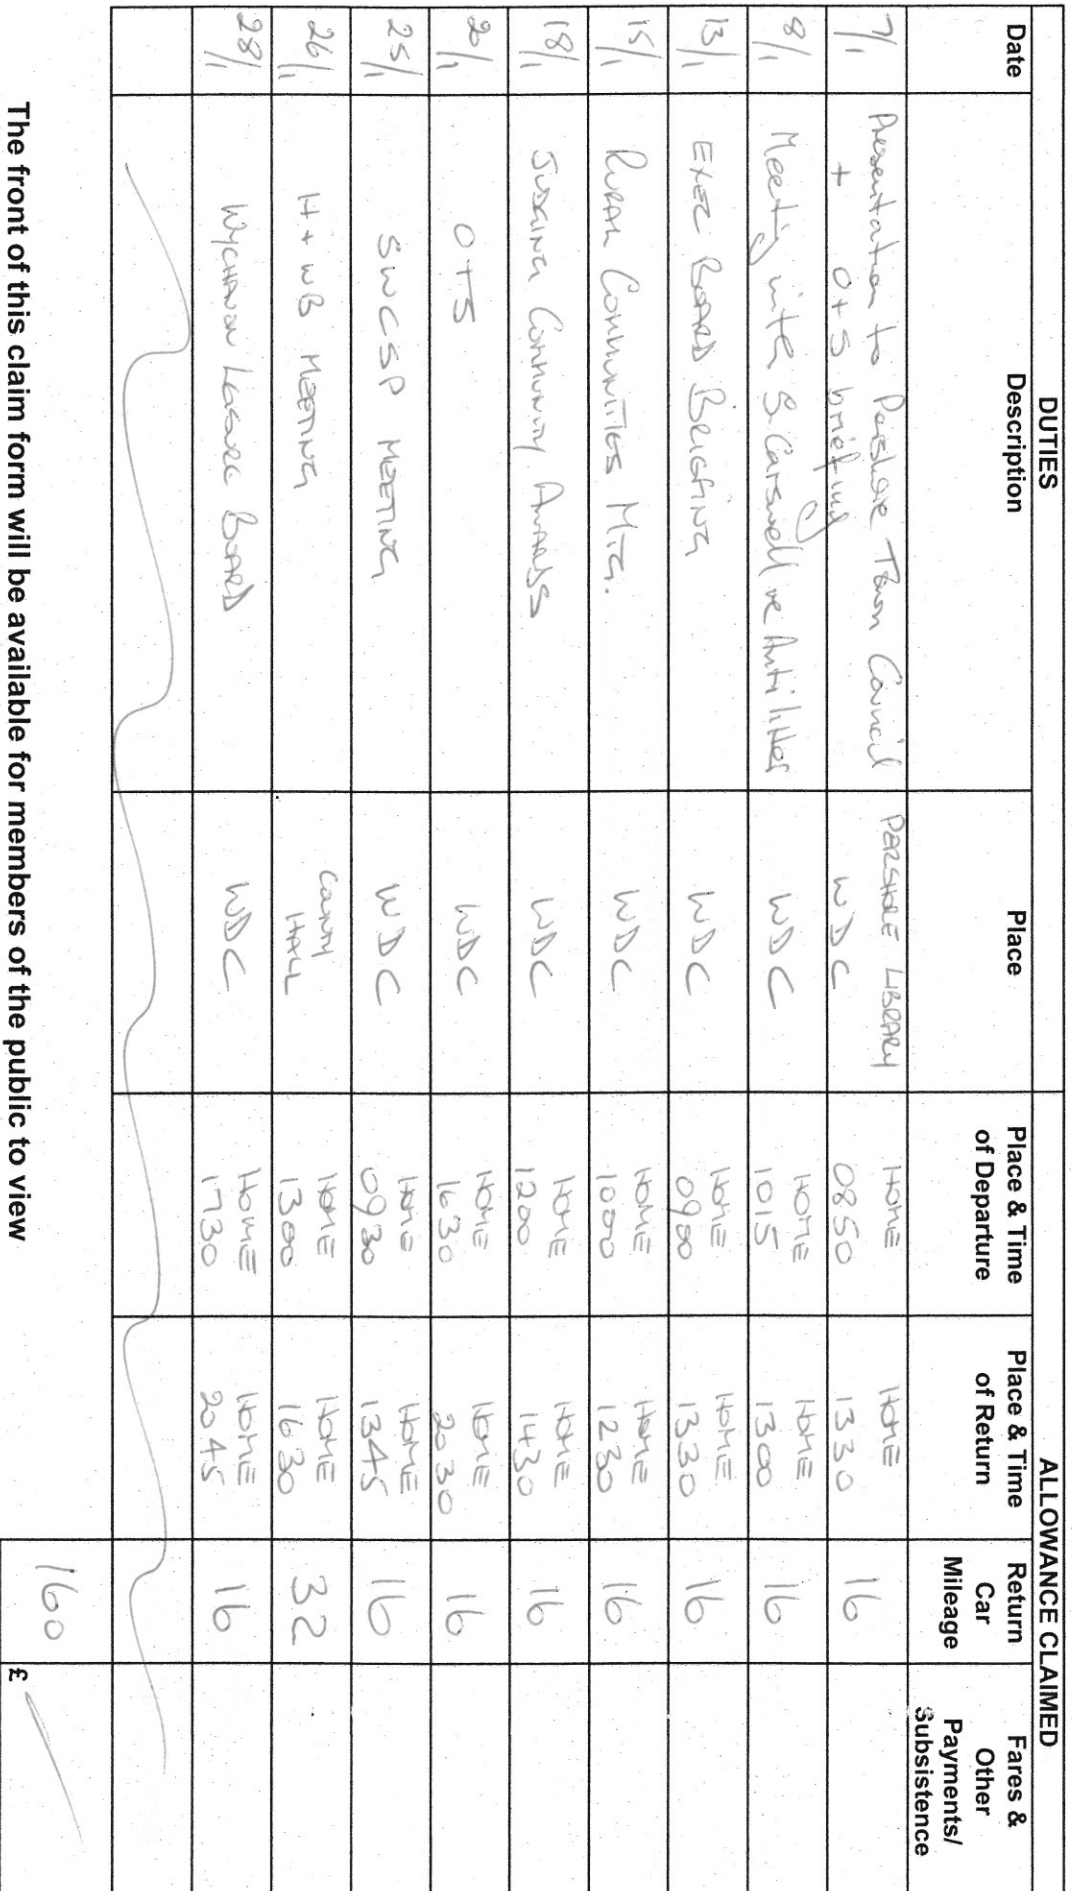 DUTIES
ALLOWANCE CLAIMED
Date
Description
Place
Place & Time
of Departure
Place & Time
of Return
Return
Car
Mileage
Fares &
Other
Payments/
Subsistence
7/1
Presentation to Pershore Town Council
+ O+S briefing
PERSHORE LIBRARY
WDC
HOME
0850
HOME
1330
16
8/1
Meeting with S. Carswell re Antilitter
WDC
HOME
1015
HOME
1300
16
13/1
EXEC BOARD BRIEFING
WDC
HOME
0900
HOME
1330
16
15/1
RURAL COMMUNITIES MTG.
WDC
HOME
1000
HOME
1230
16
18/1
JUDGING COMMUNITY AWARDS
WDC
HOME
1200
HOME
1430
16
20/1
O+S
WDC
HOME
1630
HOME
2030
16
25/1
SWCSP MEETING
WDC
HOME
0930
HOME
1345
16
26/1
H+WB MEETING
COUNTY
HALL
HOME
1300
HOME
1630
32
28/1
WYCHAVON LEISURE BOARD
WDC
HOME
1730
HOME
2045
16
160
£
The front of this claim form will be available for members of the public to view